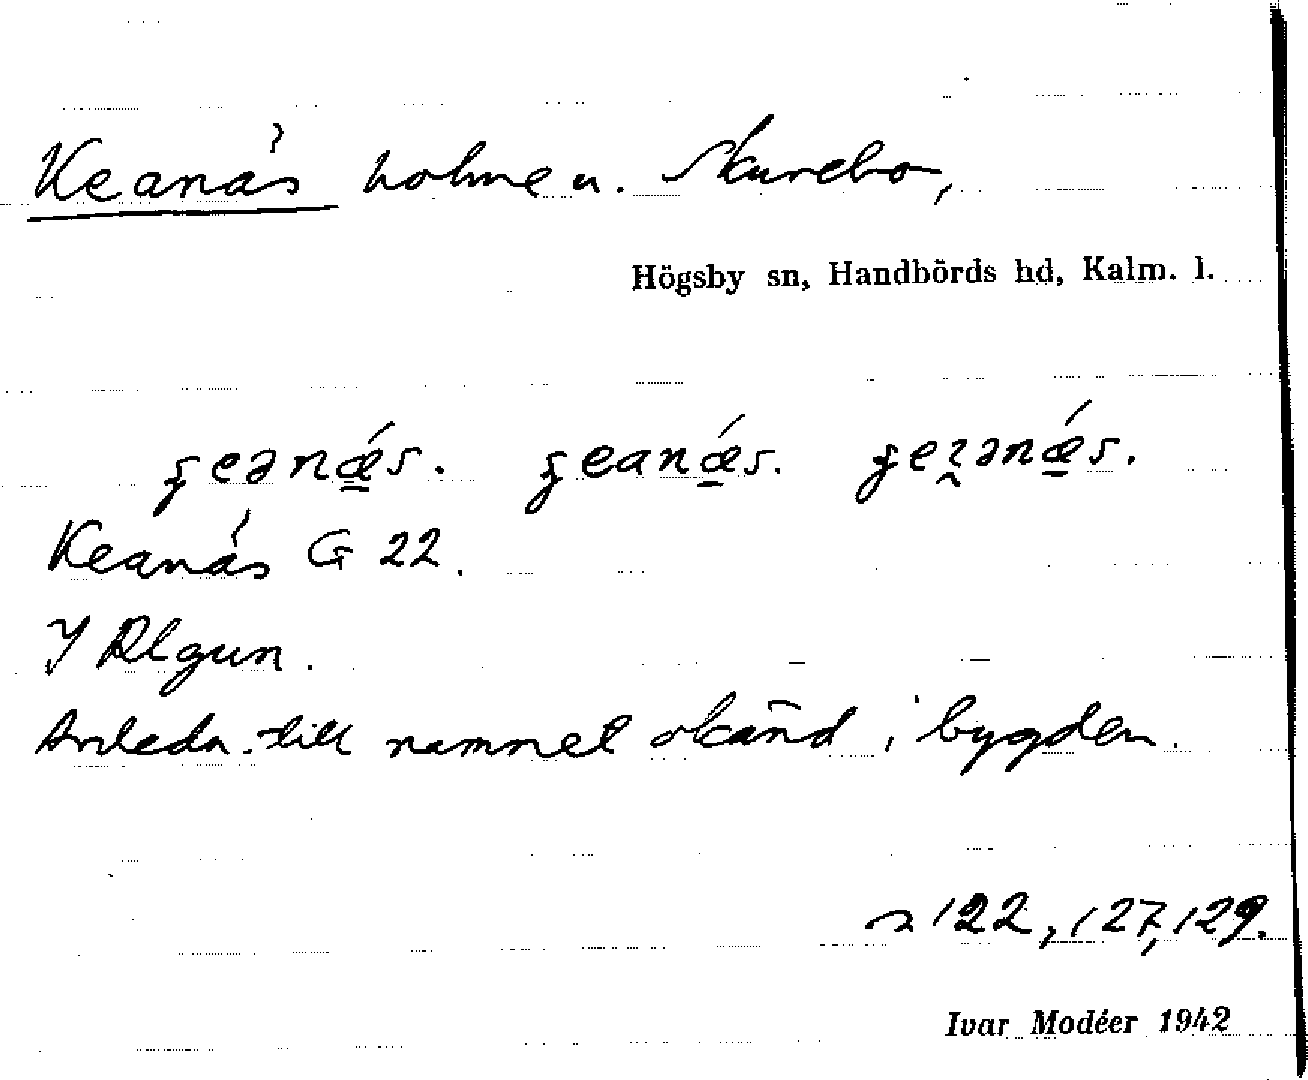 Keanäs holme u. Skurebo,
Högsby sn, Handbörds hd, Kalm. l.
Keanäs G 22.
I Algun.
Anledn. till namnet okänd i bygden.
122, 127, 129.
Ivar Modéer 1942